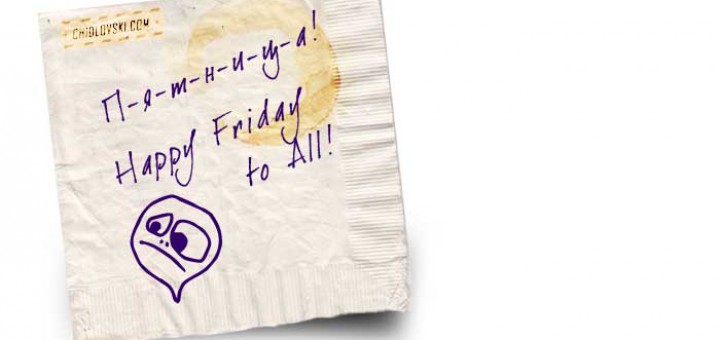 CHIDLOVSKI.COM
П-я-т-н-и-ц-а!
Happy Friday
to All!